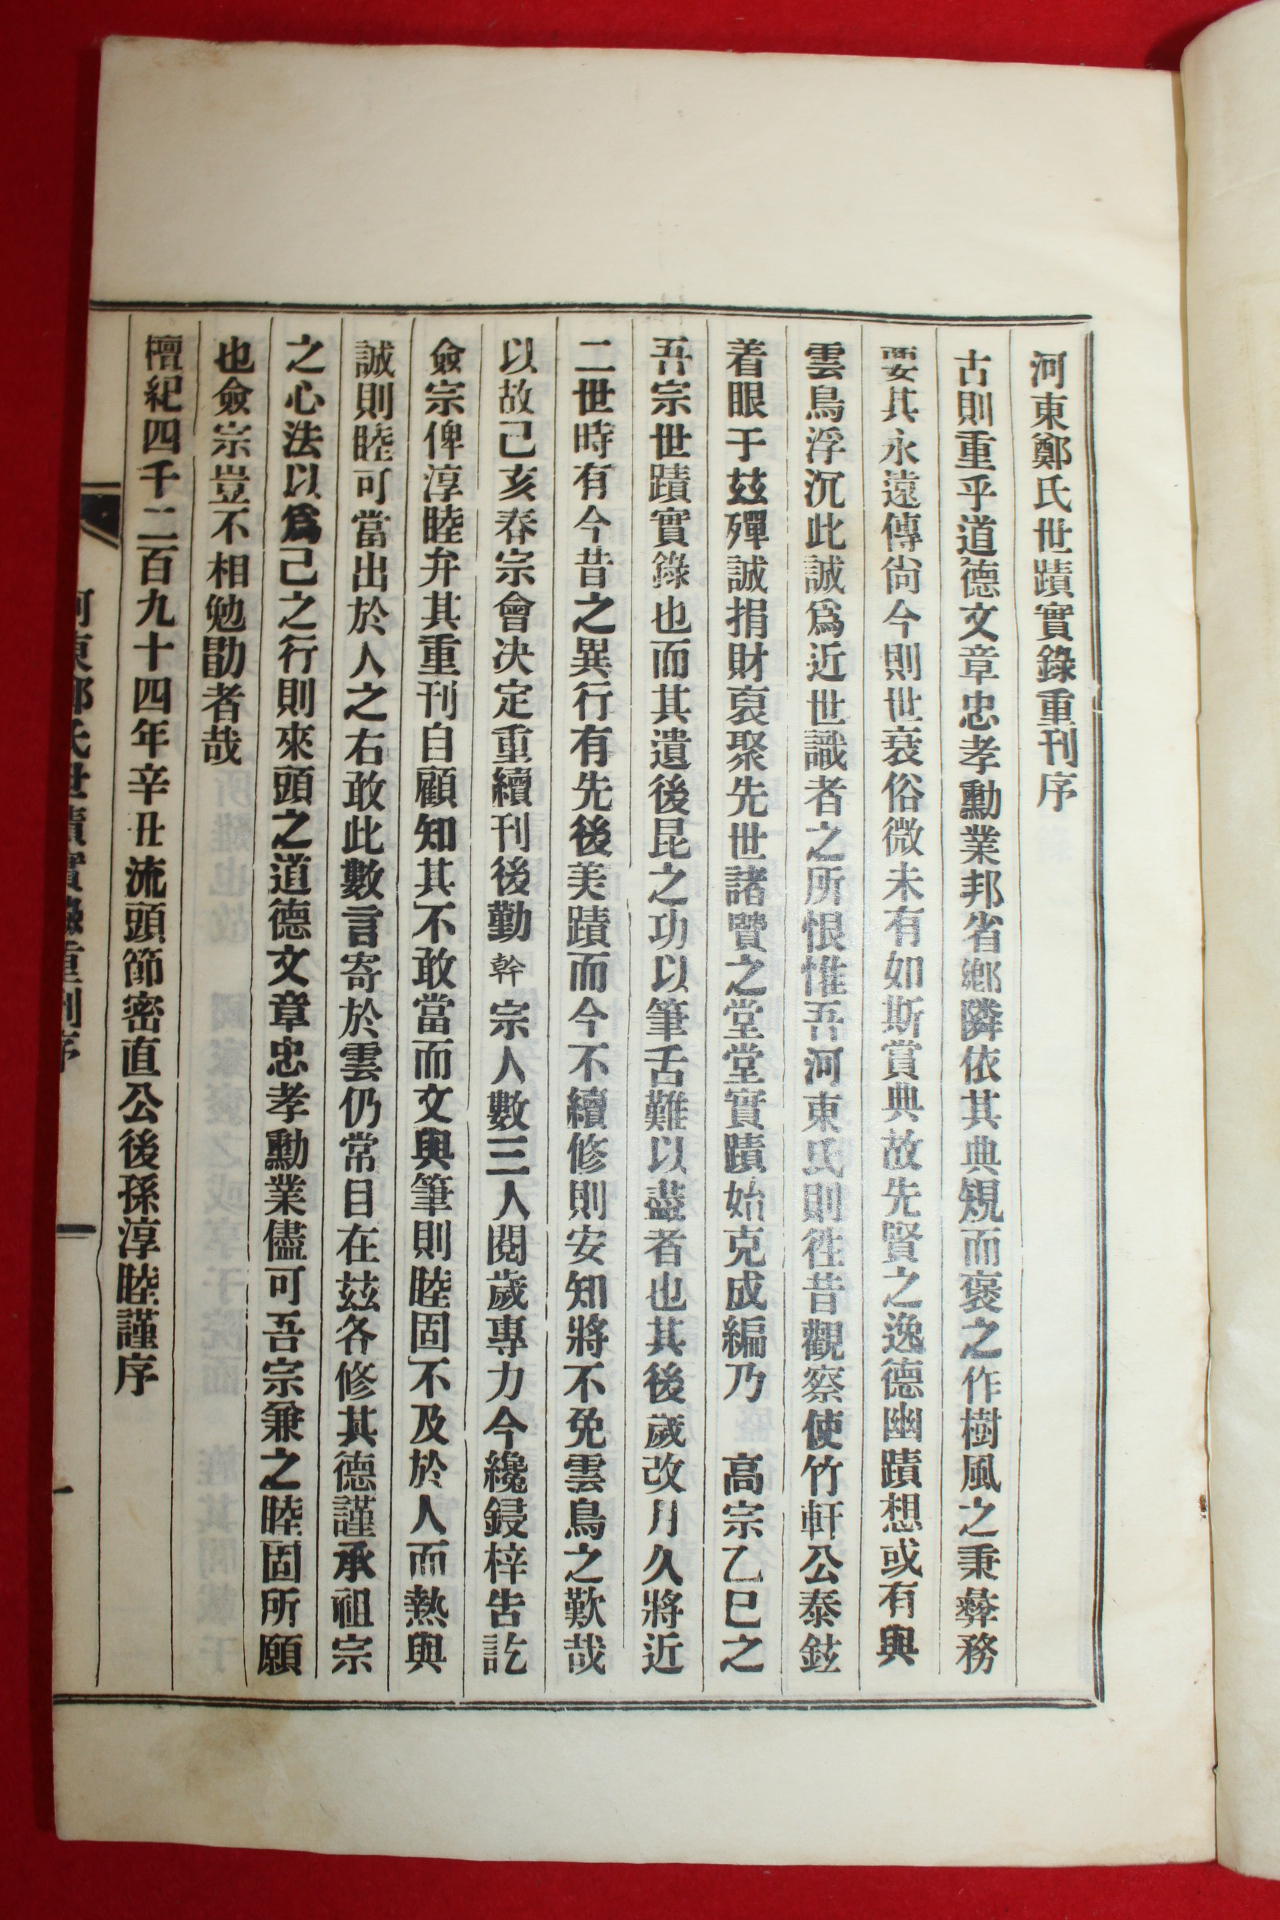 河東鄭氏世蹟實錄重刊序
古則重乎道德文章忠孝勳業邦省鄕隣依其典規而褒之作樹風之秉彝務
要其永遠傳尙今則世衰俗微未有如斯賞典故先賢之逸德幽蹟想或有與
雲鳥浮沉此誠爲近世識者之所恨惟吾河東氏則徃昔觀察使竹軒公泰鉉
着眼于玆殫誠捐財裒聚先世諸賢之堂堂實蹟始克成編乃 高宗乙巳之
吾宗世蹟實錄也而其遺後昆之功以筆舌難以盡者也其後歲改月久將近
二世時有今昔之異行有先後美蹟而今不續修則安知將不免雲鳥之歎哉
以故己亥春宗會決定重續刊後勤幹宗人數三人閱歲專力今纔鋟梓告訖
僉宗俾淳睦弁其重刊自顧知其不敢當而文與筆則睦固不及於人而熱與
誠則睦可當出於人之右敢此數言寄於雲仍常目在玆各修其德謹承祖宗
之心法以爲己之行則來頭之道德文章忠孝勳業儘可吾宗兼之睦固所願
也僉宗豈不相勉勖者哉
檀紀四千二百九十四年辛丑流頭節密直公後孫淳睦謹序
河東鄭氏世蹟實錄重刊序
一